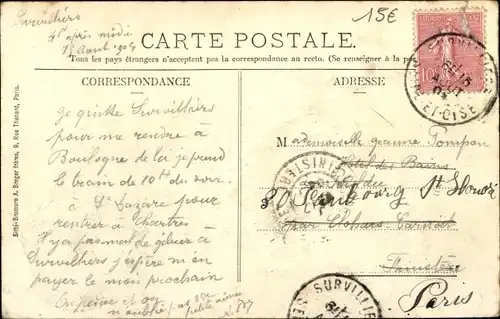 Survilliers
4h après midi
15 Aout 1904
15€
CARTE POSTALE.
Tous les pays étrangers n'acceptent pas la correspondance au recto. (Se renseigner à la
CORRESPONDANCE
ADRESSE
Je quitte Survilliers
pour me rendre à
Boulogne de là je prend
le train de 10h du soir
à St Lazare pour
rentrer à Chartres
Il y a pas mal de gibier à
Survilliers j'espère m'en
payer le mois prochain
petite amie
Mademoiselle Jeanne Pompon
Hôtel des Bains
30 Faubourg St Honoré
par Clohars Carnoët
Finistère
Paris
SURVILLIERS
ET-OISE
FINISTERE
SURVILLIE
10
Simi-Bromure A. Breger frères, 9, Rue Thénard, Paris.